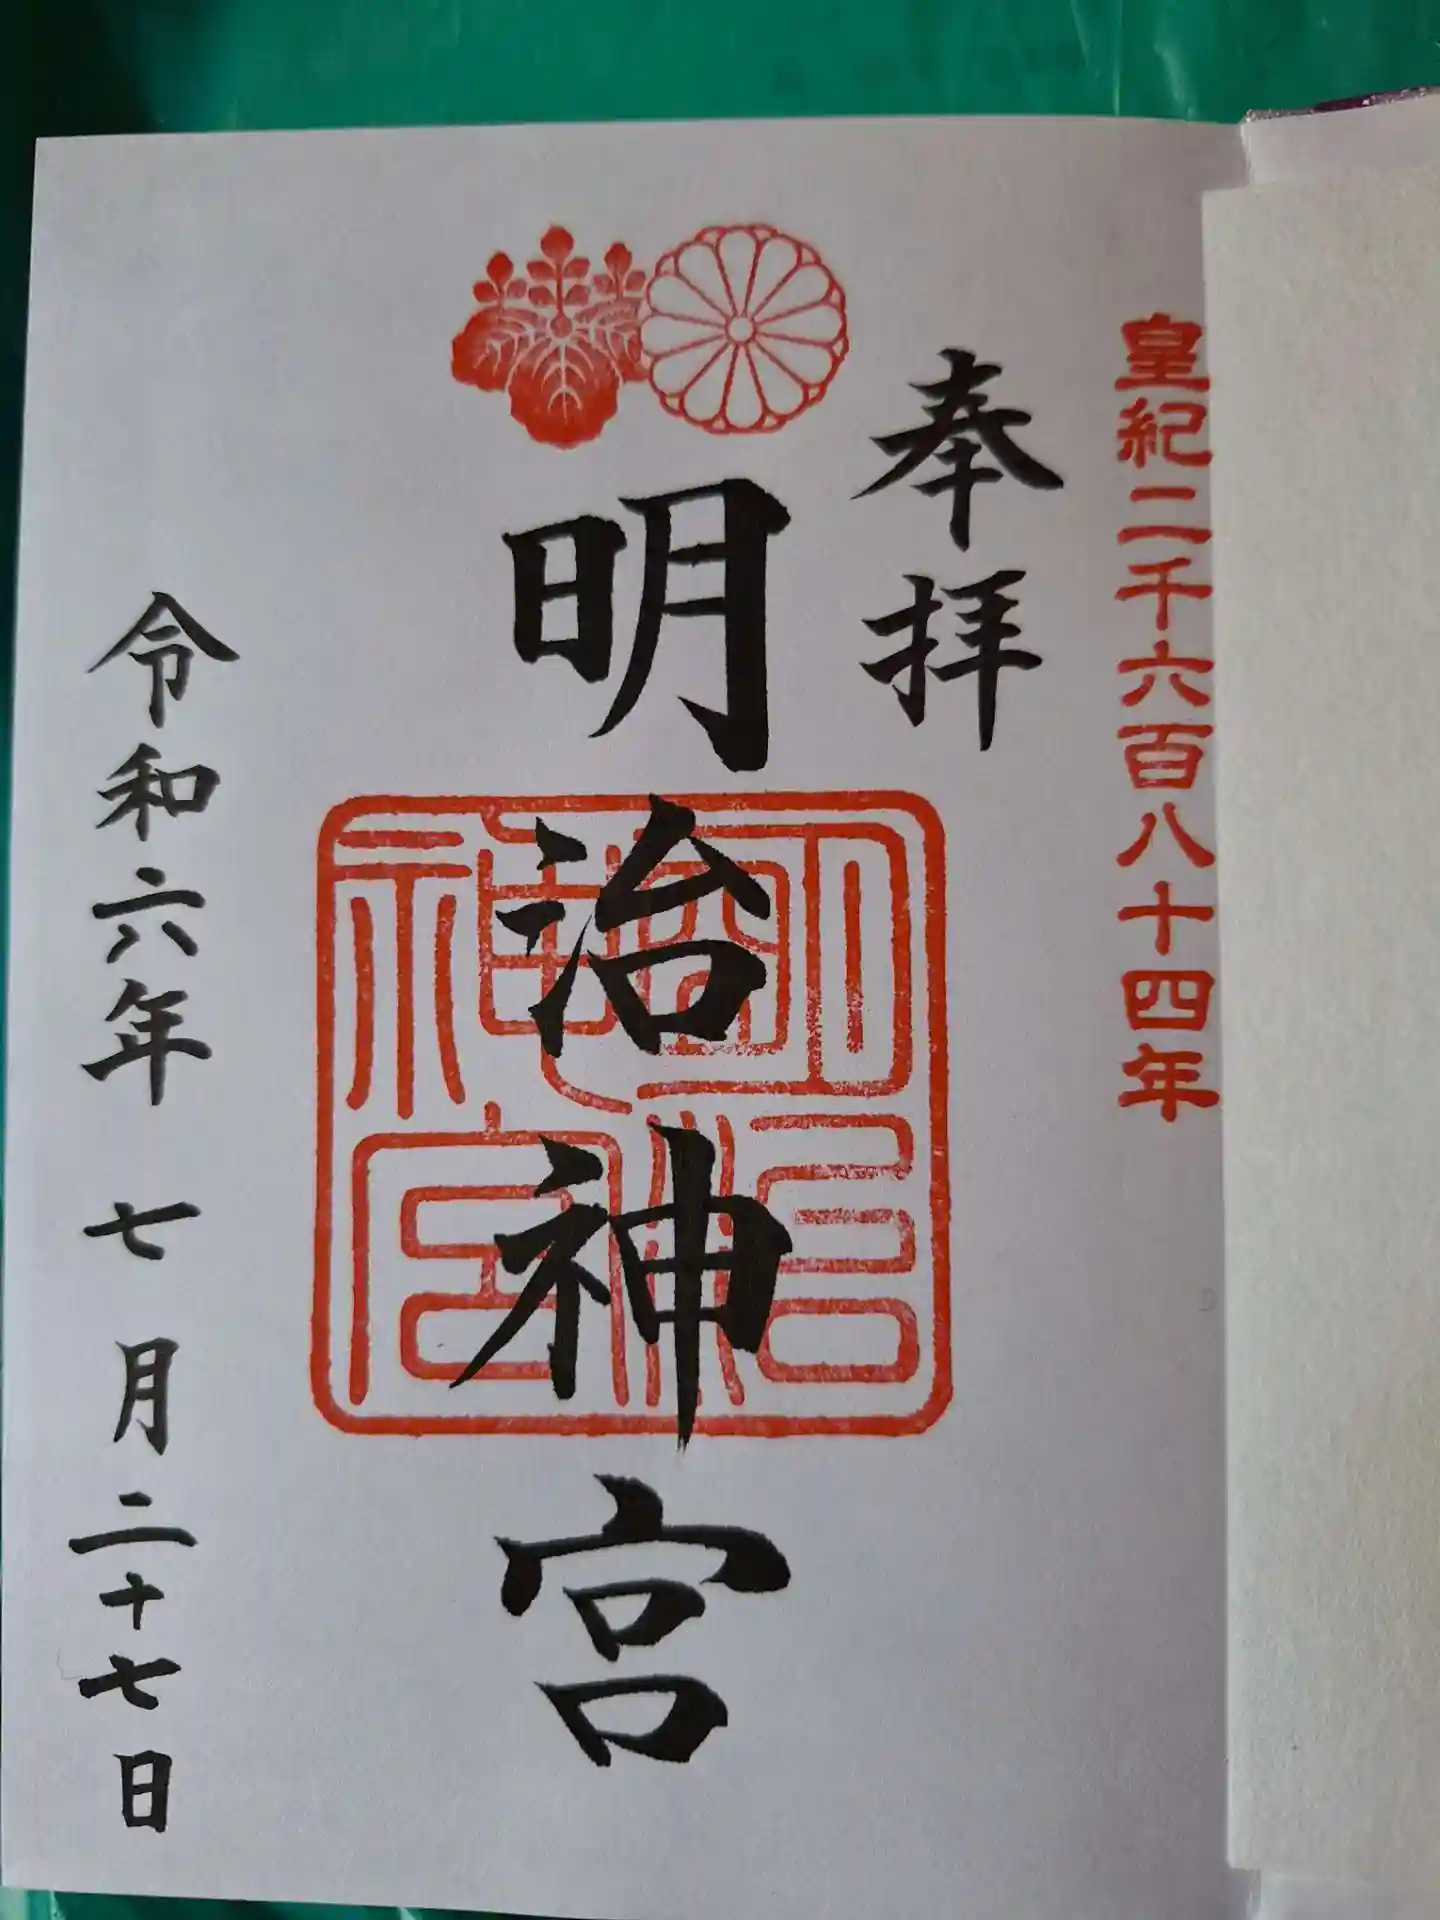 皇紀二千六百八十四年
奉拝
明治神宮
明治神宮
令和六年 七月二十七日